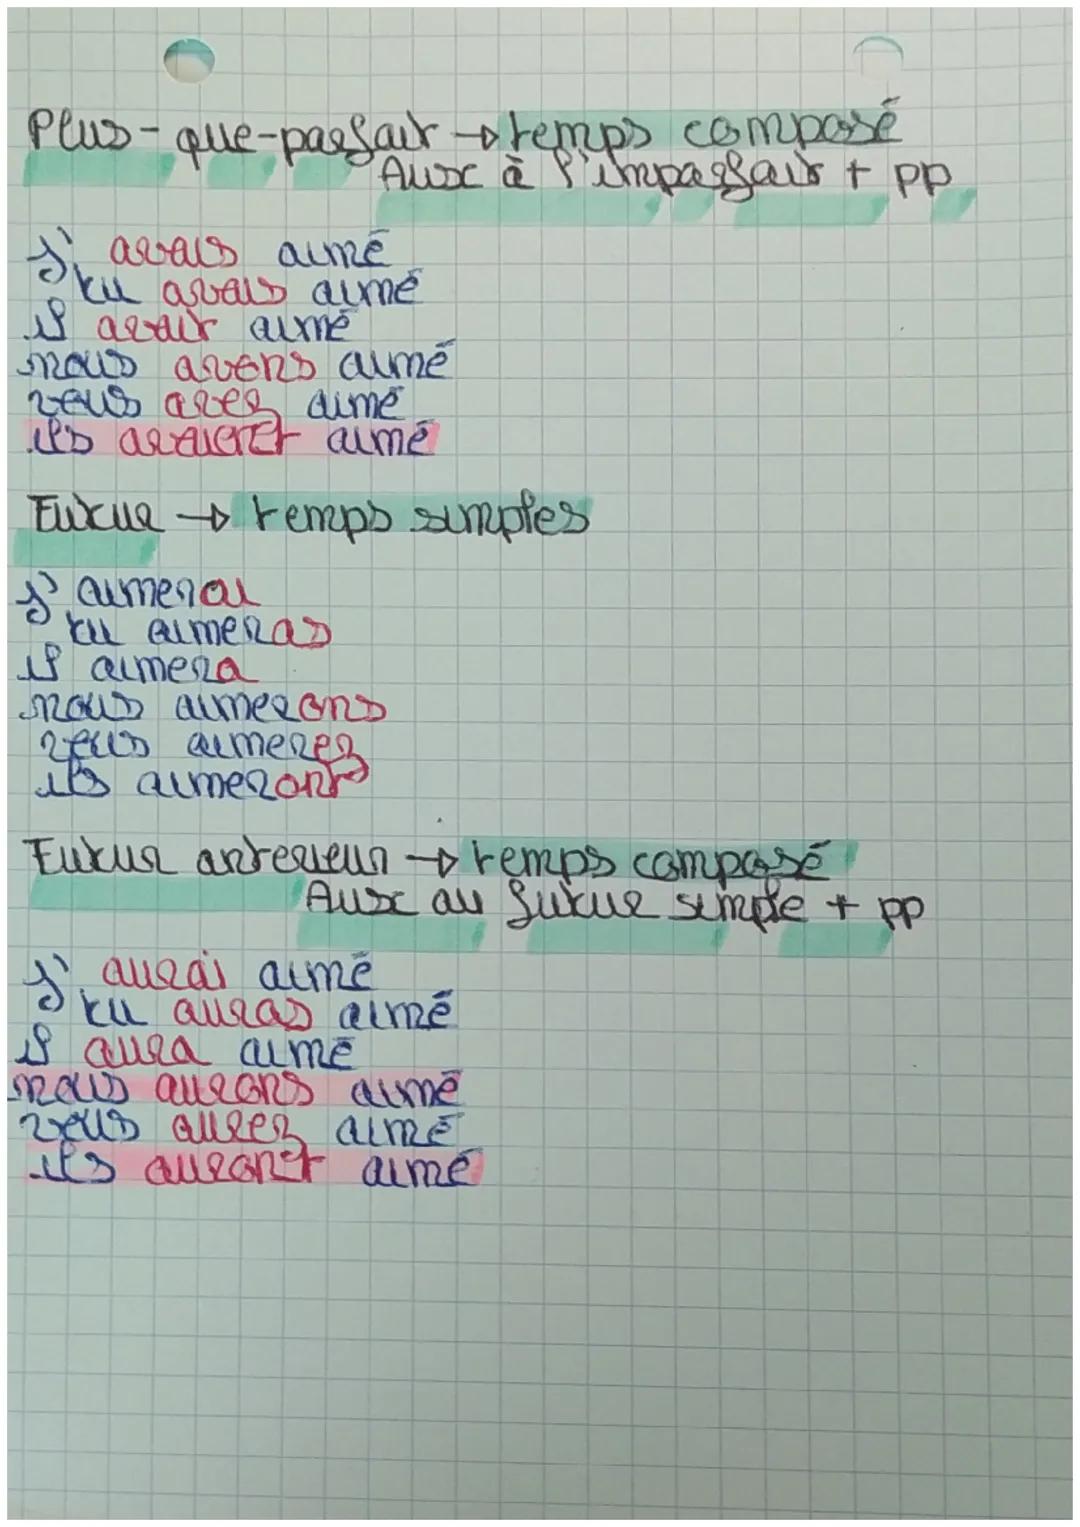 Plus-que-parfait → temps composé
Aux à l'imparfait + pp
j' avais aimé
tu avais aimé
il avait aimé
nous avons aimé
vous avez aimé
ils avaient aimé
Futur → temps simples
j' aimerai
tu aimeras
il aimera
nous aimerons
vous aimerez
ils aimeront
Futur anterieur → temps composé
Aux au futur simple + pp
j' aurai aimé
tu auras aimé
il aura aimé
nous aurons aimé
vous aurez aimé
ils auront aimé